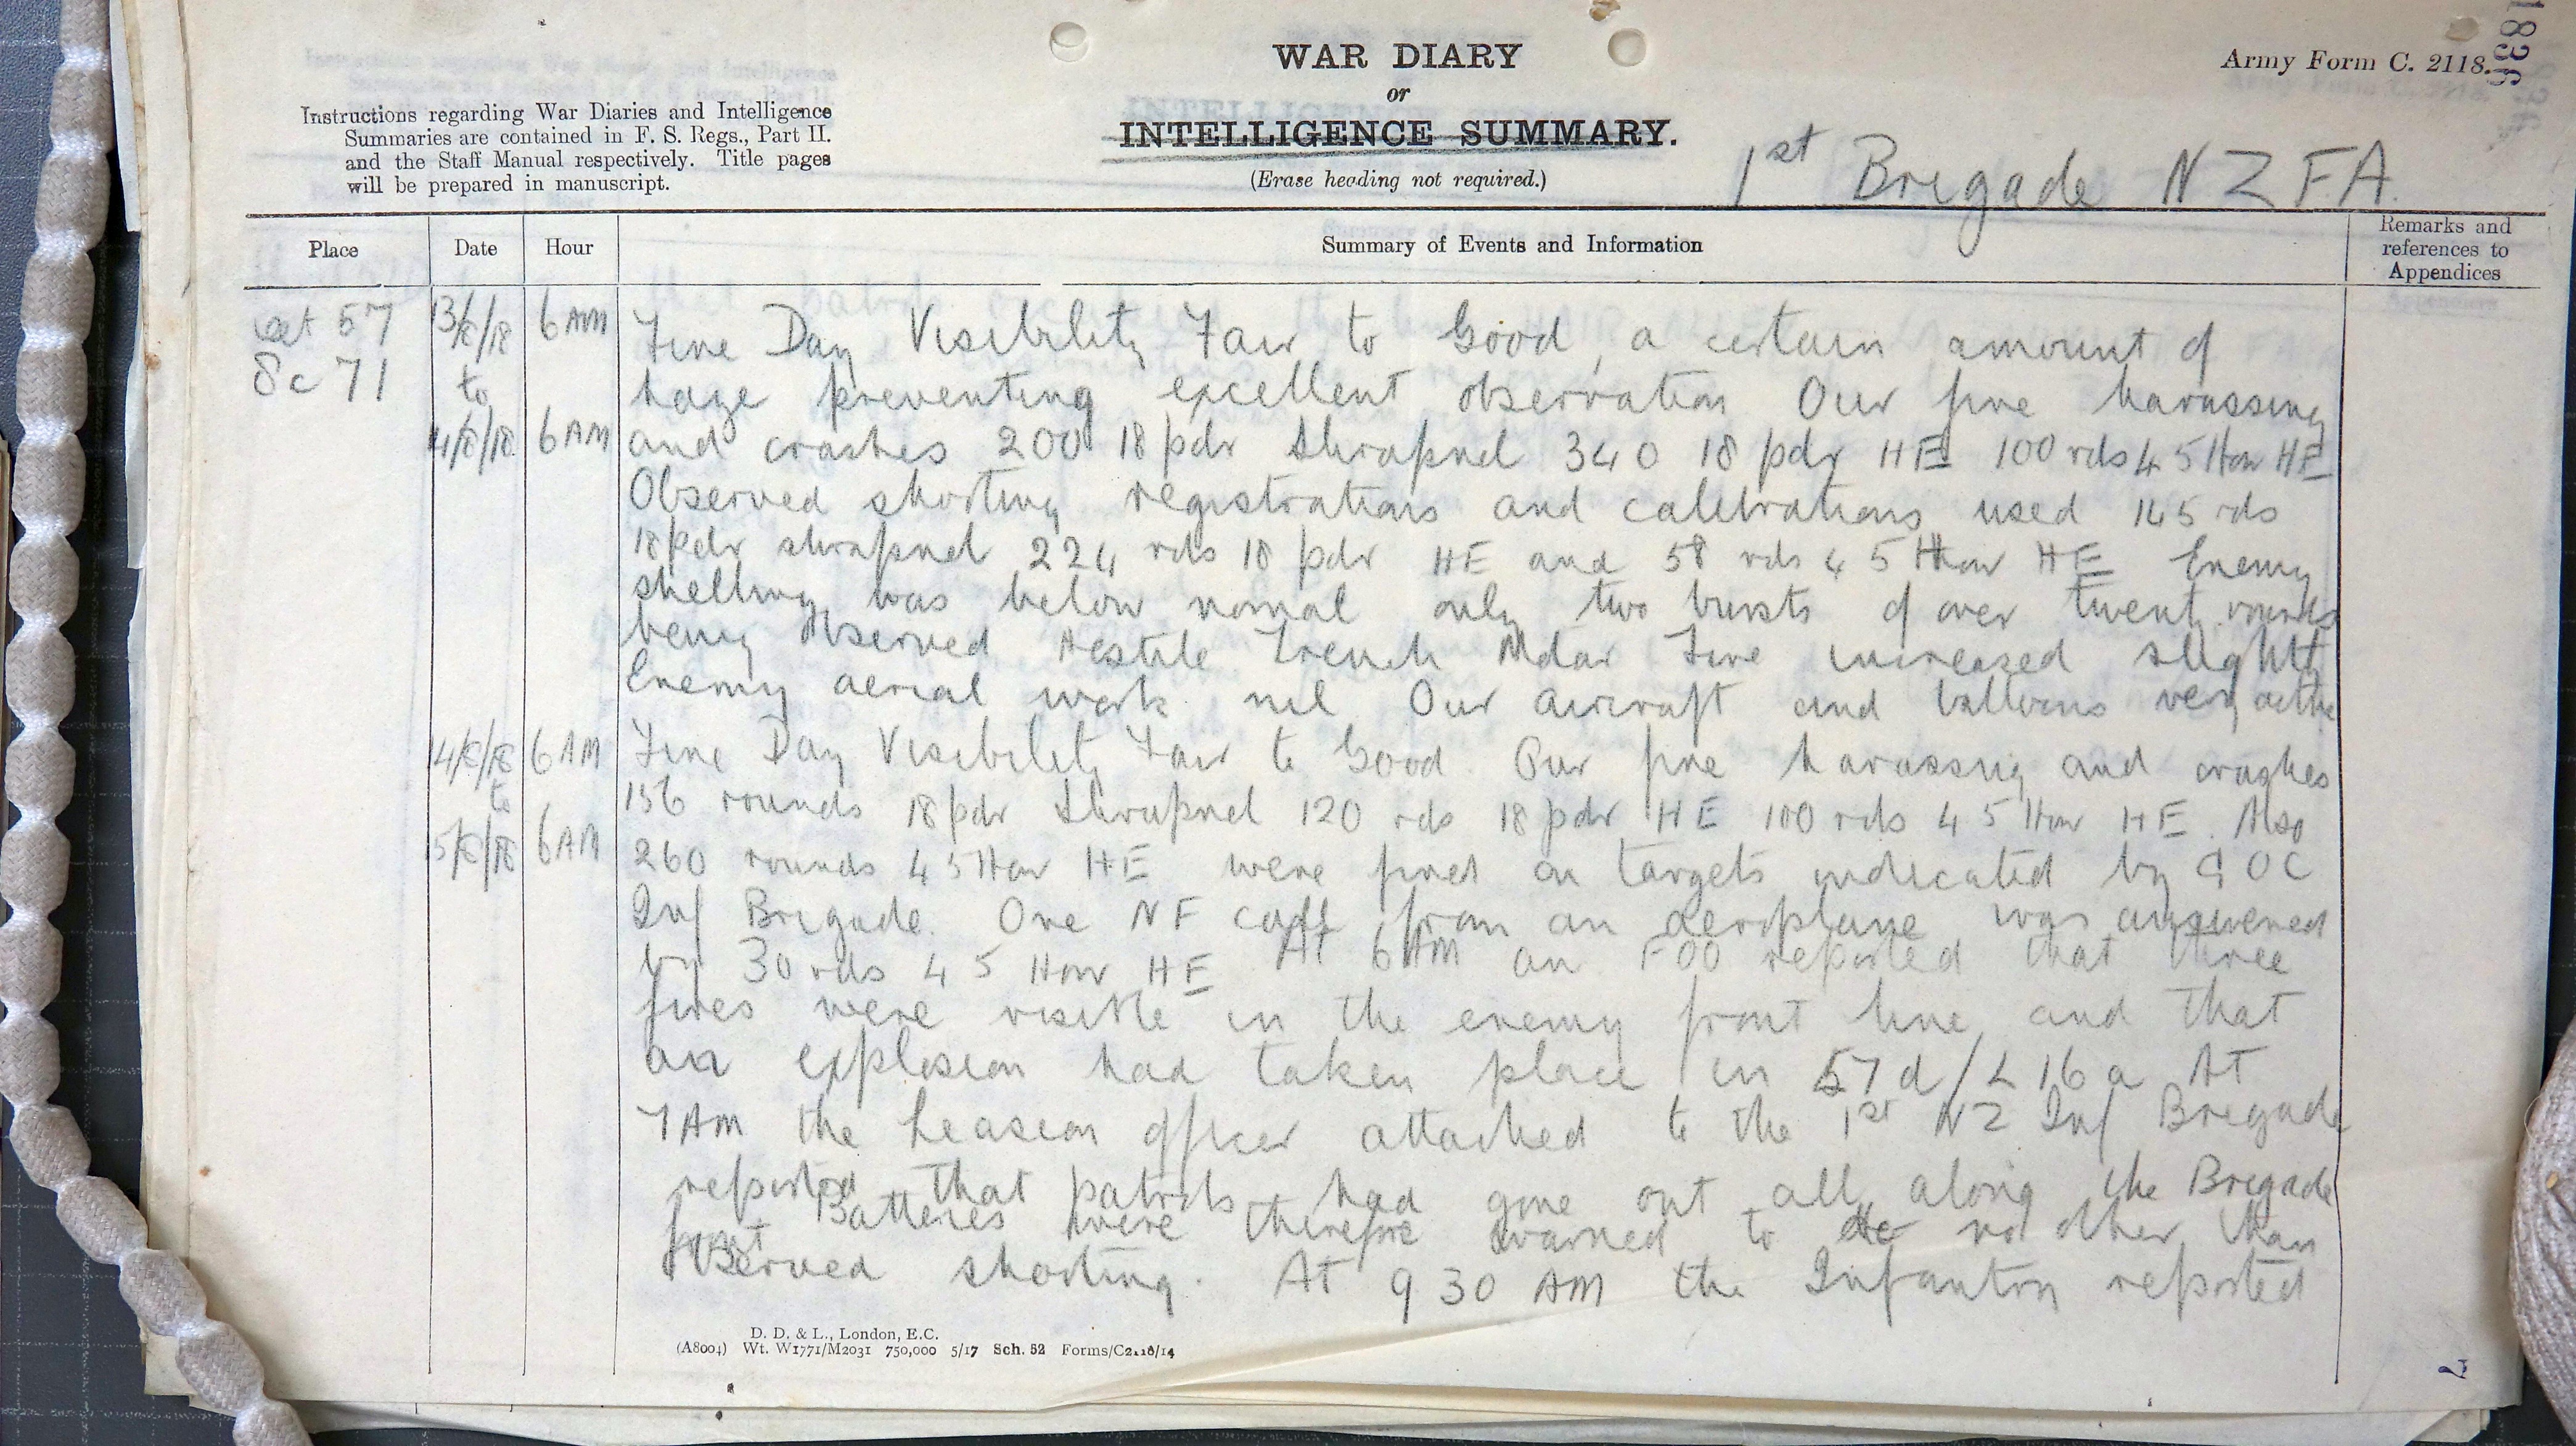 1836
WAR DIARY
or
INTELLIGENCE SUMMARY.
(Erase heading not required.)
Army Form C. 2118.
Instructions regarding War Diaries and Intelligence
Summaries are contained in F. S. Regs., Part II.
and the Staff Manual respectively. Title pages
will be prepared in manuscript.
1st Brigade NZFA
Place
Date
Hour
Summary of Events and Information
Remarks and
references to
Appendices
57
8c 71
3/8/18 6 AM
to
4/8/18 6 AM
Fine Day Visibility Fair to Good, a certain amount of
haze preventing excellent observation Our fire harassing
and crashes 200 18 pdr Shrapnel 340 18 pdr HE 100 rds 4 5 How HE
Observed shooting registrations and calibrations used 145 rds
18 pdr shrapnel 224 rds 18 pdr HE and 58 rds 4 5 How HE Enemy
shelling was below normal only two bursts of over twenty rounds
being observed Hostile Trench Mortar Fire increased slightly
Enemy aerial work nil Our aircraft and balloons very active
4/8/18 6 AM
to
5/8/18 6 AM
Fine Day Visibility Fair to Good. Our fire harassing and crashes
156 rounds 18 pdr Shrapnel 120 rds 18 pdr HE 100 rds 4 5 How HE. Also
260 rounds 4 5 How HE were fired on targets indicated by GOC
Inf Brigade. One NF call from an aeroplane was answered
by 30 rds 4 5 How HE At 6 AM an FOO reported that three
fires were visible in the enemy front line and that
an explosion had taken place in 57d/L 16 a At
7 AM the Leasion officer attached to the 1st NZ Inf Brigade
reported that patrols had gone out all along the Brigade
front Batteries were therefore warned to do no other than
observed shooting. At 9 30 AM the Infantry reported
D. D. & L., London, E.C.
(A8004) Wt. W1771/M2031 750,000 5/17 Sch. 52 Forms/C2118/14